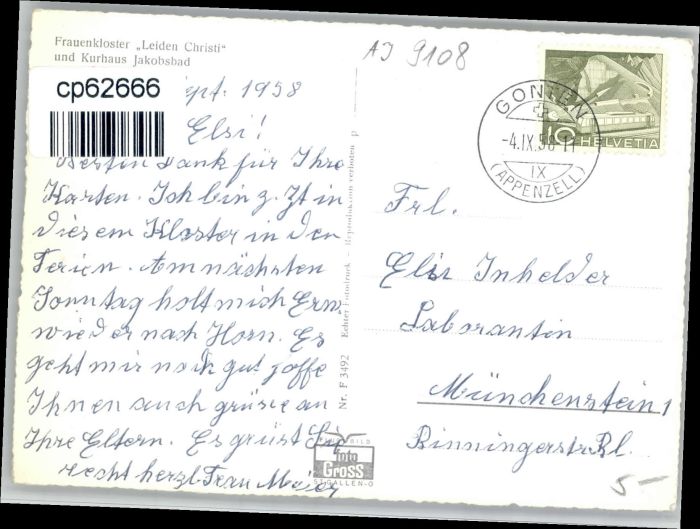 Frauenkloster „Leiden Christi“
und Kurhaus Jakobsbad
cp62666
Sept. 1958
Elsi!
Besten Dank für Ihre
Karten. Ich bin z. Zt in
diesem Kloster in den
Ferien. Am nächsten
Sonntag holt mich Erw
wieder nach Horn. Es
geht mir noch gut joffe
Ihnen auch grüsse an
Ihre Eltern. Es grüst Sie
recht herzl Frau Maier
AJ 9108
GONTEN
-4.IX.58-11
IX
(APPENZELL)
10
HELVETIA
Frl.
Elsi Inhelder
Laborantin
Münchenstein 1
Binningerstr.
5-
Nr. F 3492 Echter Fotodruck - Reproduktion verboten
BILD
foto
Gross
ST.GALLEN-O